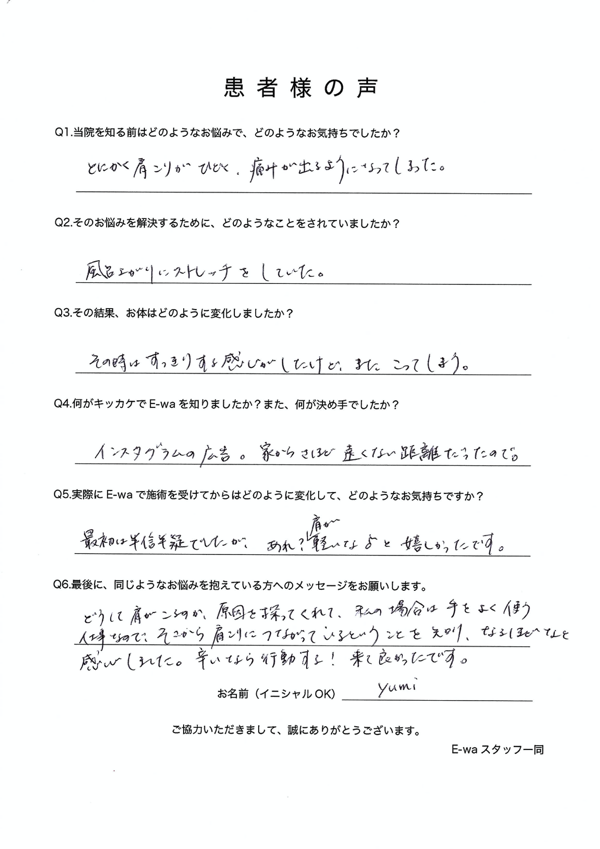 患者様の声
Q1.当院を知る前はどのようなお悩みで、どのようなお気持ちでしたか？
とにかく肩こりがひどく、痛みが出るようになってしまった。
Q2.そのお悩みを解決するために、どのようなことをされていましたか？
風呂上がりにストレッチをしていた。
Q3.その結果、お体はどのように変化しましたか？
その時はすっきりする感じがしたけど、また こってしまう。
Q4.何がキッカケでE-waを知りましたか？また、何が決め手でしたか？
インスタグラムの広告。家からさほど遠くない距離だったので。
Q5.実際にE-waで施術を受けてからはどのように変化して、どのようなお気持ちですか？
肩が
最初は半信半疑でしたが、あれ？軽いなぁと嬉しかったです。
Q6.最後に、同じようなお悩みを抱えている方へのメッセージをお願いします。
どうして肩がこるのか、原因を探ってくれて、私の場合は手をよく使う
仕事なので、そこから肩こりにつながっているということを知り、なるほどなと
感じました。辛いなら行動する！来て良かったです。
お名前（イニシャルOK） yumi
ご協力いただきまして、誠にありがとうございます。
E-waスタッフ一同